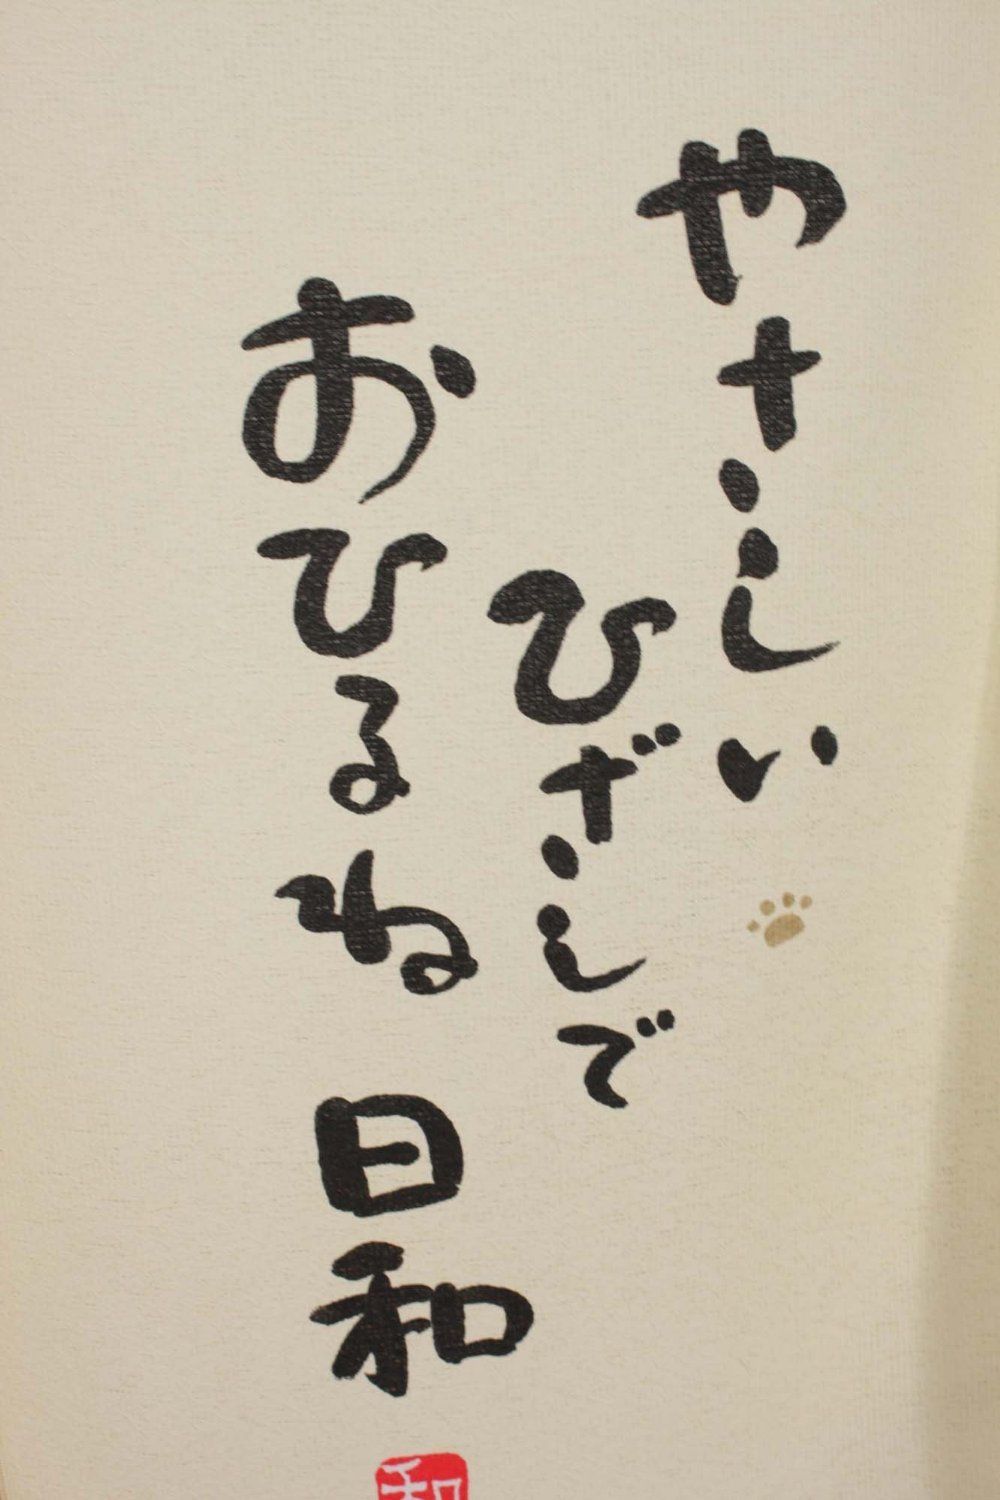 やさしい
ひざしで
おひるね日和
和